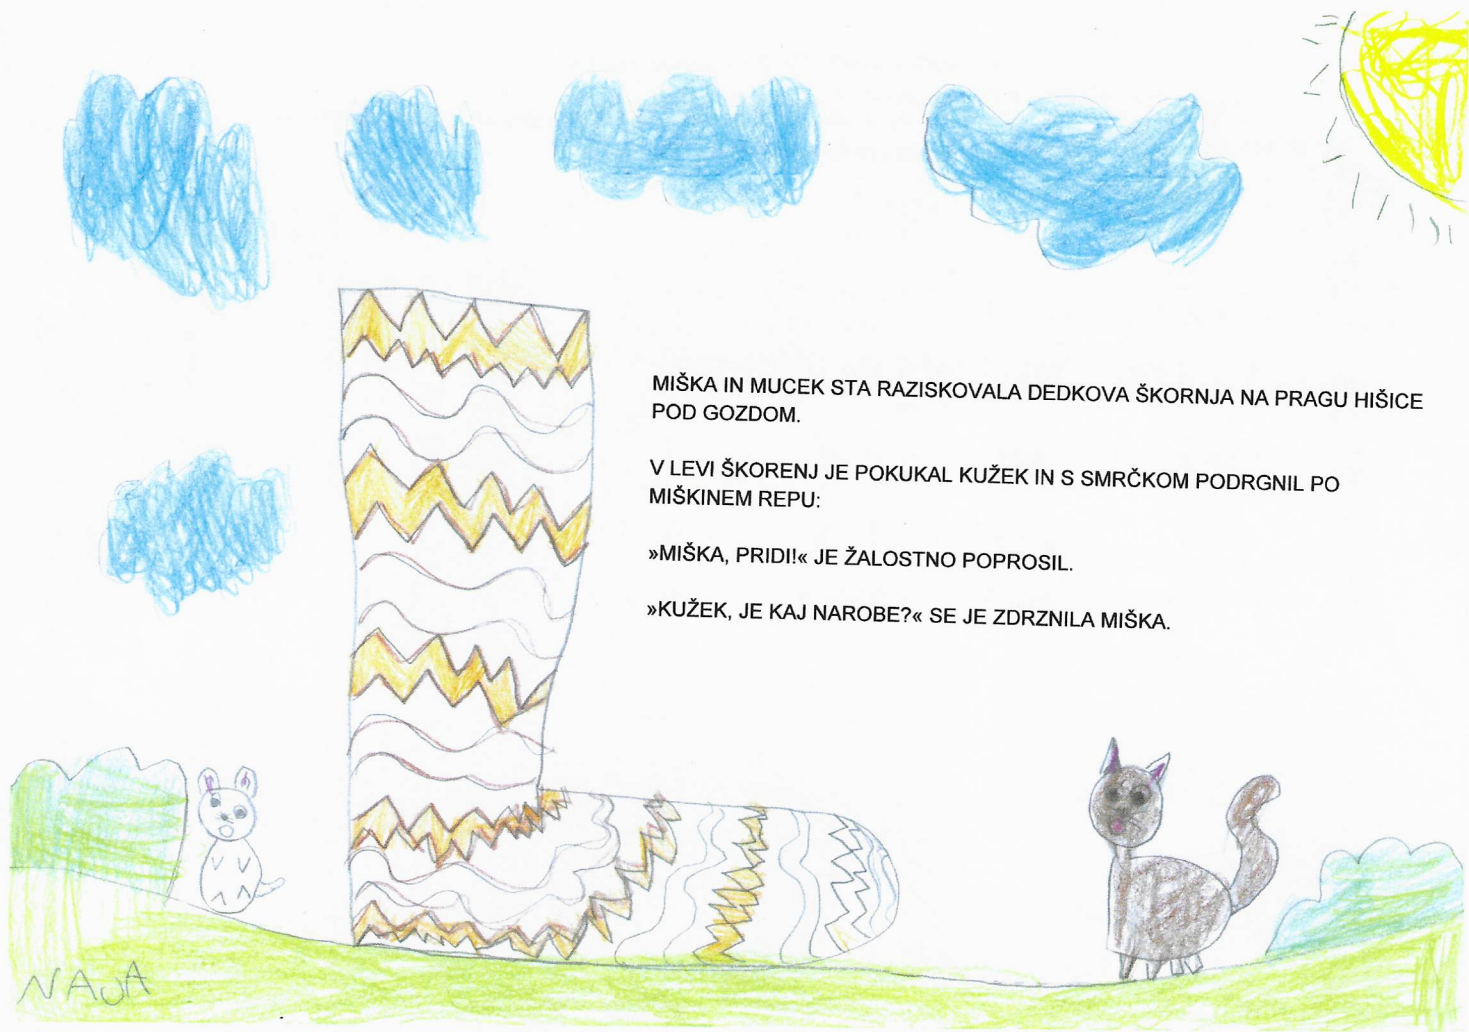 MIŠKA IN MUCEK STA RAZISKOVALA DEDKOVA ŠKORNJA NA PRAGU HIŠICE
POD GOZDOM.
V LEVI ŠKORENJ JE POKUKAL KUŽEK IN S SMRČKOM PODRGNIL PO
MIŠKINEM REPU:
»MIŠKA, PRIDI!« JE ŽALOSTNO POPROSIL.
»KUŽEK, JE KAJ NAROBE?« SE JE ZDRZNILA MIŠKA.
NAJA